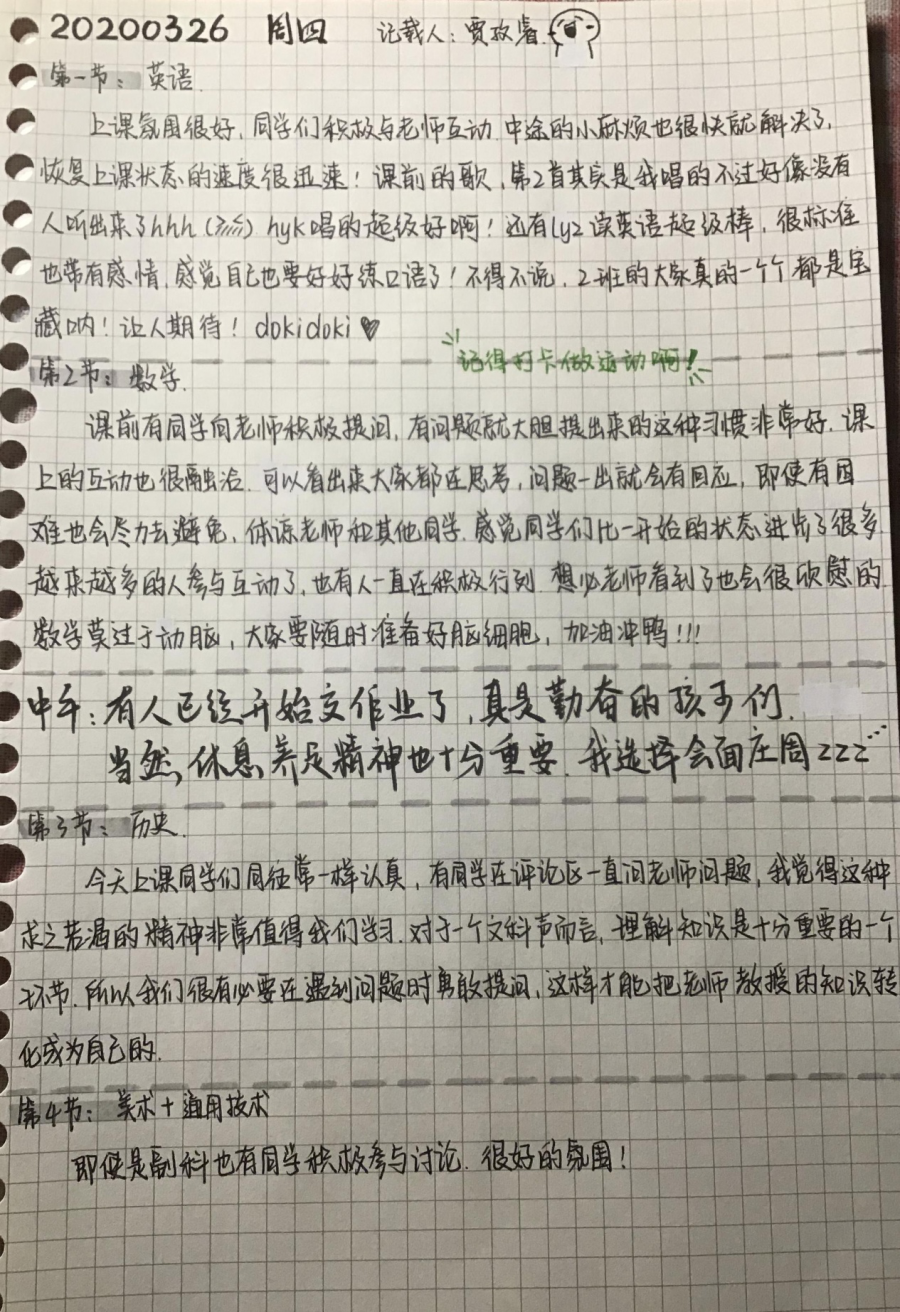 20200326 周四 记载人:贾孜睿
第一节:英语.
上课氛围很好,同学们积极与老师互动.中途的小麻烦也很快就解决了,
恢复上课状态的速度很迅速!课前的歌,第2首其实是我唱的不过好像没有
人听出来了hhh() hyk唱的超级好啊!还有lyz读英语超级棒,很标准
也带有感情,感觉自己也要好好练口语了!不得不说,2班的大家真的一个个都是宝
藏呐!让人期待!dokidoki♥
记得打卡做运动啊!
第2节:数学.
课前有同学向老师积极提问,有问题就大胆提出来的这种习惯非常好.课
上的互动也很融洽.可以看出来大家都在思考,问题一出就会有回应,即使有困
难也会尽力去避免,体谅老师和其他同学.感觉同学们比一开始的状态进步了很多.
越来越多的人参与互动了,也有人一直在积极行列.想必老师看到了也会很欣慰的.
数学莫过于动脑,大家要随时准备好脑细胞,加油冲鸭!!!
中午:有人已经开始交作业了,真是勤奋的孩子们.
当然,休息,养足精神也十分重要.我选择会面庄周zzz...
第3节:历史.
今天上课同学们同往常一样认真,有同学在评论区一直问老师问题,我觉得这种
求之若渴的精神非常值得我们学习.对于一个文科声而言,理解知识是十分重要的一个
环节.所以我们很有必要在遇到问题时勇敢提问,这样才能把老师教授的知识转
化成为自己的.
第4节:美术+通用技术
即使是副科也有同学积极参与讨论.很好的氛围!